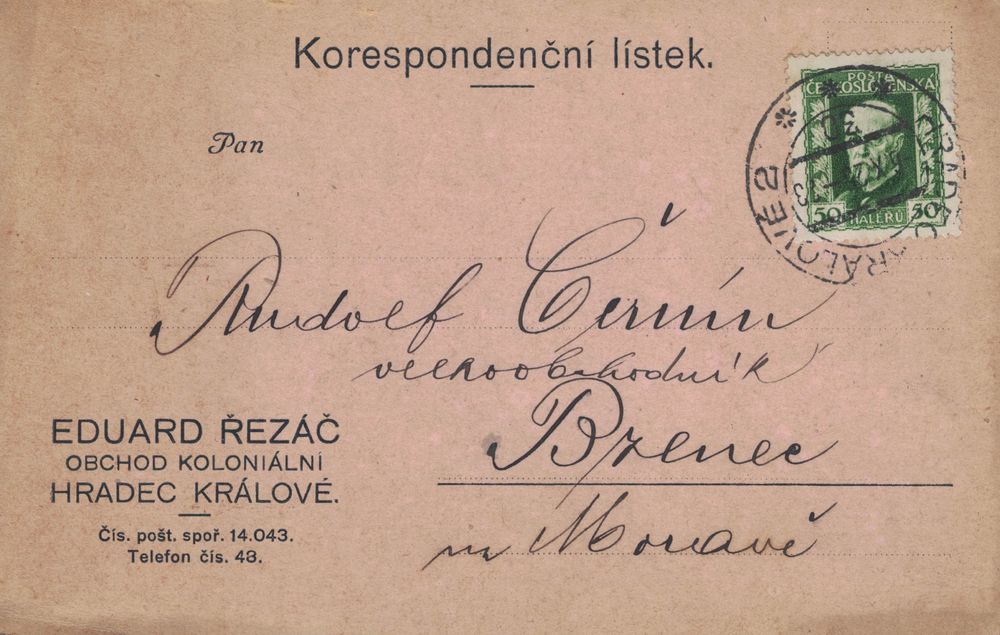 Korespondenční lístek.
POŠTA
ČESKOSLOVENSKÁ
50 HALÉŘŮ 50
KRÁLOVÉ 2
Pan
Rudolf Černín
velkoobchodník
Bzenec
na Moravě
EDUARD ŘEZÁČ
OBCHOD KOLONIÁLNÍ
HRADEC KRÁLOVÉ.
Čís. pošt. spoř. 14.043.
Telefon čís. 43.